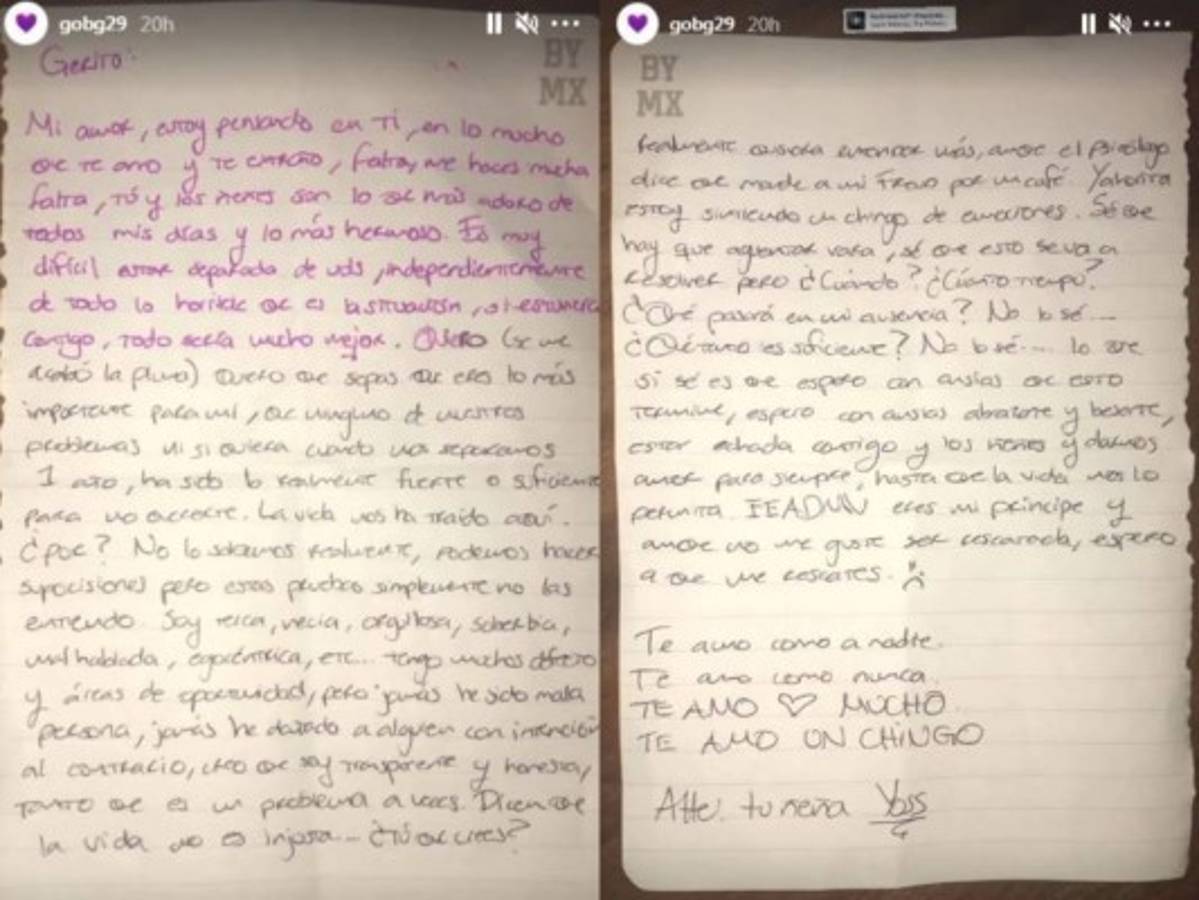 gobg29 20h
BY
MX
Gerito:
Mi amor, estoy pensando en Ti, en lo mucho
que te amo y te extraño, falta, me haces mucha
falta, tú y los nenes son lo que más adoro de
todos mis días y lo más hermoso. Es muy
difícil estar separada de uds, independientemente
de todo lo horrible que es la situación, si estuviera
contigo, todo sería mucho mejor. Quiero (se me
acabó la pluma) Quiero que sepas que eres lo más
importante para mi, que ninguno de nuestros
problemas ni si quiera cuando nos separamos
1 año, ha sido lo realmente fuerte o suficiente
para no. La vida nos ha traído aquí.
¿por? No lo sabemos realmente, podemos hacer
suposiciones pero estas pruebas simplemente no las
entiendo. Soy terca, necia, orgullosa, soberbia,
mal hablada, egocéntrica, etc... tengo muchos defectos
y áreas de oportunidad, pero jamás he sido mala
persona, jamás he dañado a alguien con intención
al contrario, creo que soy transparente y honesta,
tanto que es un problema a veces. Dicen que
la vida no es injusta... ¿Tú que crees?
gobg29 20h
BY
MX
Realmente quisiera entender más, amor el Psicólogo
dice que mande a mi Freud por un café. Yahorita
estoy sintiendo un chingo de emociones. Sé que
hay que aguantar vara, sé que esto se va a
resolver pero ¿Cuándo? ¿Cuánto tiempo?
¿Qué pasará en mi ausencia? No lo sé....
¿Qué tanto es suficiente? No lo sé.... lo que
si sé es que espero con ansias que esto
termine, espero con ansias abrazarte y besarte,
estar echada contigo y los nenes y darnos
amor para siempre, hasta que la vida nos lo
permita eres mi principe y
amor no me gusta ser rescatada, espero
a que me rescates.
Te amo como a nadie.
Te amo como nunca.
TE AMO ♡ MUCHO
TE AMO UN CHINGO
Atte: tu nena Yoss